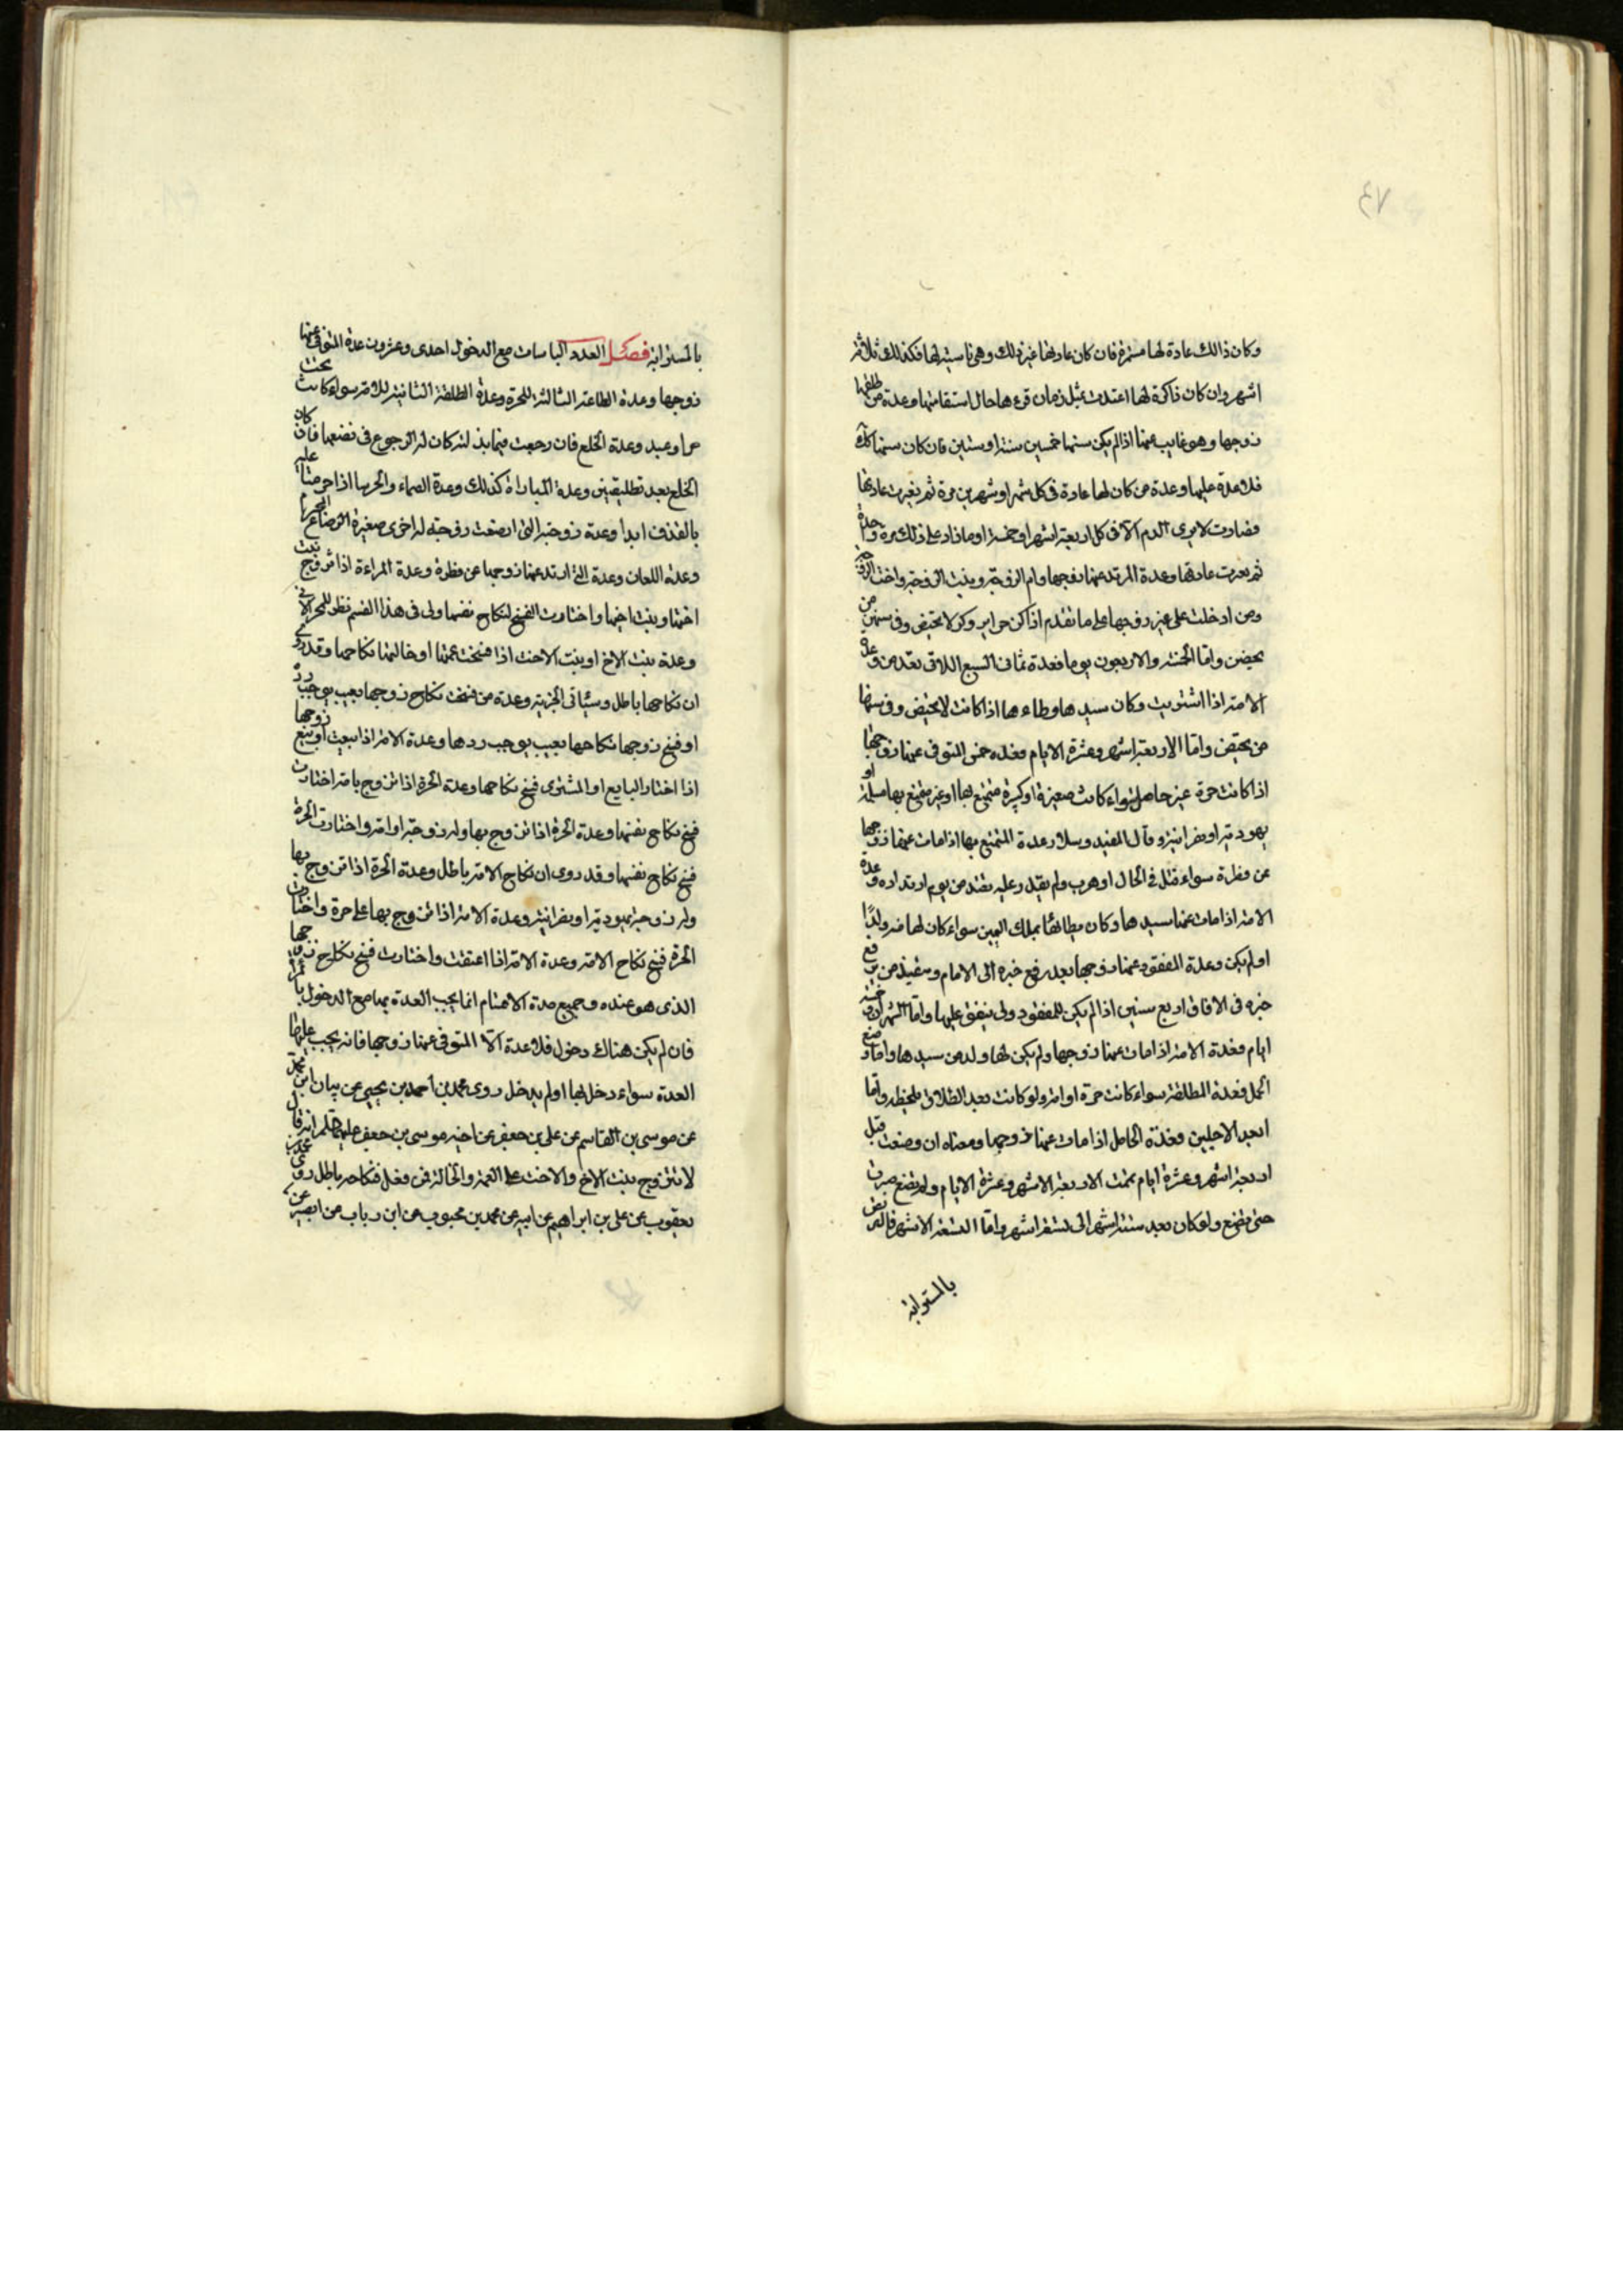 وكان ذالك عادة لها مستمرة فان كان عادتها غير ذلك وهي ناسية لها فكذلك ثلاثة
اشهر وان كان ذاكرة لها اعتدت بمثل زمان قرءها حال استقامتها وعدة من طلقها
زوجها وهو غايب عنها اذا لم يكن سنها خمسين سنة او ستين فان كان سنها كذلك
فلا عدة عليها وعدة من كان لها عادة في كل شهر او شهرين مرة ثم تغيرت عادتها
فصارت لا يرى الدم الا في كل اربعة اشهر او خمسة او ما زاد على ذلك مرة واحدة
ثم تغيرت عادتها وعدة المرتد عنها زوجها وام الزوجة وبنت الزوجة واخت الزوجة
ومن ادخلت على غير زوجها على ما تقدم اذا كن حراير وكن لا يحيض وفي سنهن من
يحيض واما الخمسة والاربعون يوما فعدة ثماني السبع اللاتي تقدمن وعدة
الامة اذا اشتريت وكان سيدها وطاءها اذا كانت لا تحيض وفي سنها
من تحيض واما الاربعة اشهر وعشرة الايام فعدة المتوفى عنها زوجها
اذا كانت حرة غير حامل سواء كانت صغيرة او كبيرة متمتع بها او غير متمتع بها مسلمة او
يهودية او نصرانية وقال المفيد وسلار عدة المتمتع بها اذا مات عنها زوجها
عن فطرة سواء قتل في الحال او هرب ولم يقدر عليه تعتد من يوم ارتداده وعدة
الامة اذا مات عنها سيدها وكان يطائها بملك اليمين سواء كان لها منه ولدًا
او لم يكن وعدة المفقود عنها زوجها بعد رفع خبره الى الامام وتنفيذ من يرفع
خبره في الافاق اربع سنين اذا لم يكن للمفقود ولي ينفق عليها واما الشهران وخمسة
ايام فعدة الامة اذا مات عنها زوجها ولم يكن لها ولد من سيدها واما وضع
الحمل فعدة المطلقة سواء كانت حرة او امة ولو كانت بعد الطلاق بلحظة واما
ابعد الاجلين فعدة الحامل اذا مات عنها زوجها ومعناه ان وضعت قبل
اربعة اشهر وعشرة ايام تممت الاربعة الاشهر وعشرة الايام ولم تضع صبرت
حتى تضع ولو كان بعد ستة اشهر الى تسعة اشهر واما التسعة الاشهر
بالمسترابة
بالمسترابة فصل العدد الباسات مع الدخول احدى وعشرون عدة المتوفى عنها
زوجها وعدة الطلقة الثالثة للحرة وعدة الطلقة الثانية للامة سواء كانت تحت
حر او عبد وعدة الخلع فان رجعت فيما بذلته كان له الرجوع في بضعها فان كان
الخلع بعد تطليقتين وعدة المباراة كذلك وعدة الصماء والخرسا اذا حرمتا عليه
بالقذف ابدا وعدة زوجته التي ارضعت زوجته له اخرى صغيرة الرضاع المحرم
وعدة اللعان وعدة التي ارتد عنها زوجها عن فطرة وعدة المراءة اذا تزوج بنت
اختها وبنت اخيها واختارت الفسخ لنكاح نفسها ولي في هذا القسم نظر
وعدة بنت الاخ او بنت الاخت اذا فسخت عمتها او خالتها نكاحها وقد روى
ان نكاحها باطل وسيئاتي الخبر وعدة من فسخت نكاح زوجها بعيب يوجب رد
او فسخ زوجها نكاحها بعيب يوجب ردها وعدة الامة اذا بيعت او بيع زوجها
اذا اختار البايع او المشترى فسخ نكاحها وعدة الحرة اذا تزوج بامة اختارت
فسخ نكاح نفسها وعدة الحرة اذا تزوج بها وله زوجة او امة واختارت الحرة
فسخ نكاح نفسها وقد روى ان نكاح الامة باطل وعدة الحرة اذا تزوج بها
وله زوجة يهودية او نصرانية وعدة الامة اذا تزوج بها على حرة واختارت
الحرة فسخ نكاح الامة وعدة الامة اذا اعتقت واختارت فسخ نكاح زوجها
الذى هو عنده وجميع هذة الاقسام انما يجب العدة بها مع الدخول بالمرأة
فان لم يكن هناك دخول فلا عدة الا المتوفى عنها زوجها فانه يجب عليها
العدة سواء دخل بها او لم يدخل روى محمد بن احمد بن يحيى عن بنان ابن محمد
عن موسى بن القاسم عن على بن جعفر عن اخيه موسى بن جعفر عليهما السلام انه قال
لا تتزوج بنت الاخ والاخت على العمة والخالة فمن فعل فنكاحه باطل روى محمد بن
يعقوب عن على بن ابراهيم عن ابيه عن محمد بن محبوب عن ابن رباب عن ابى بصير عن